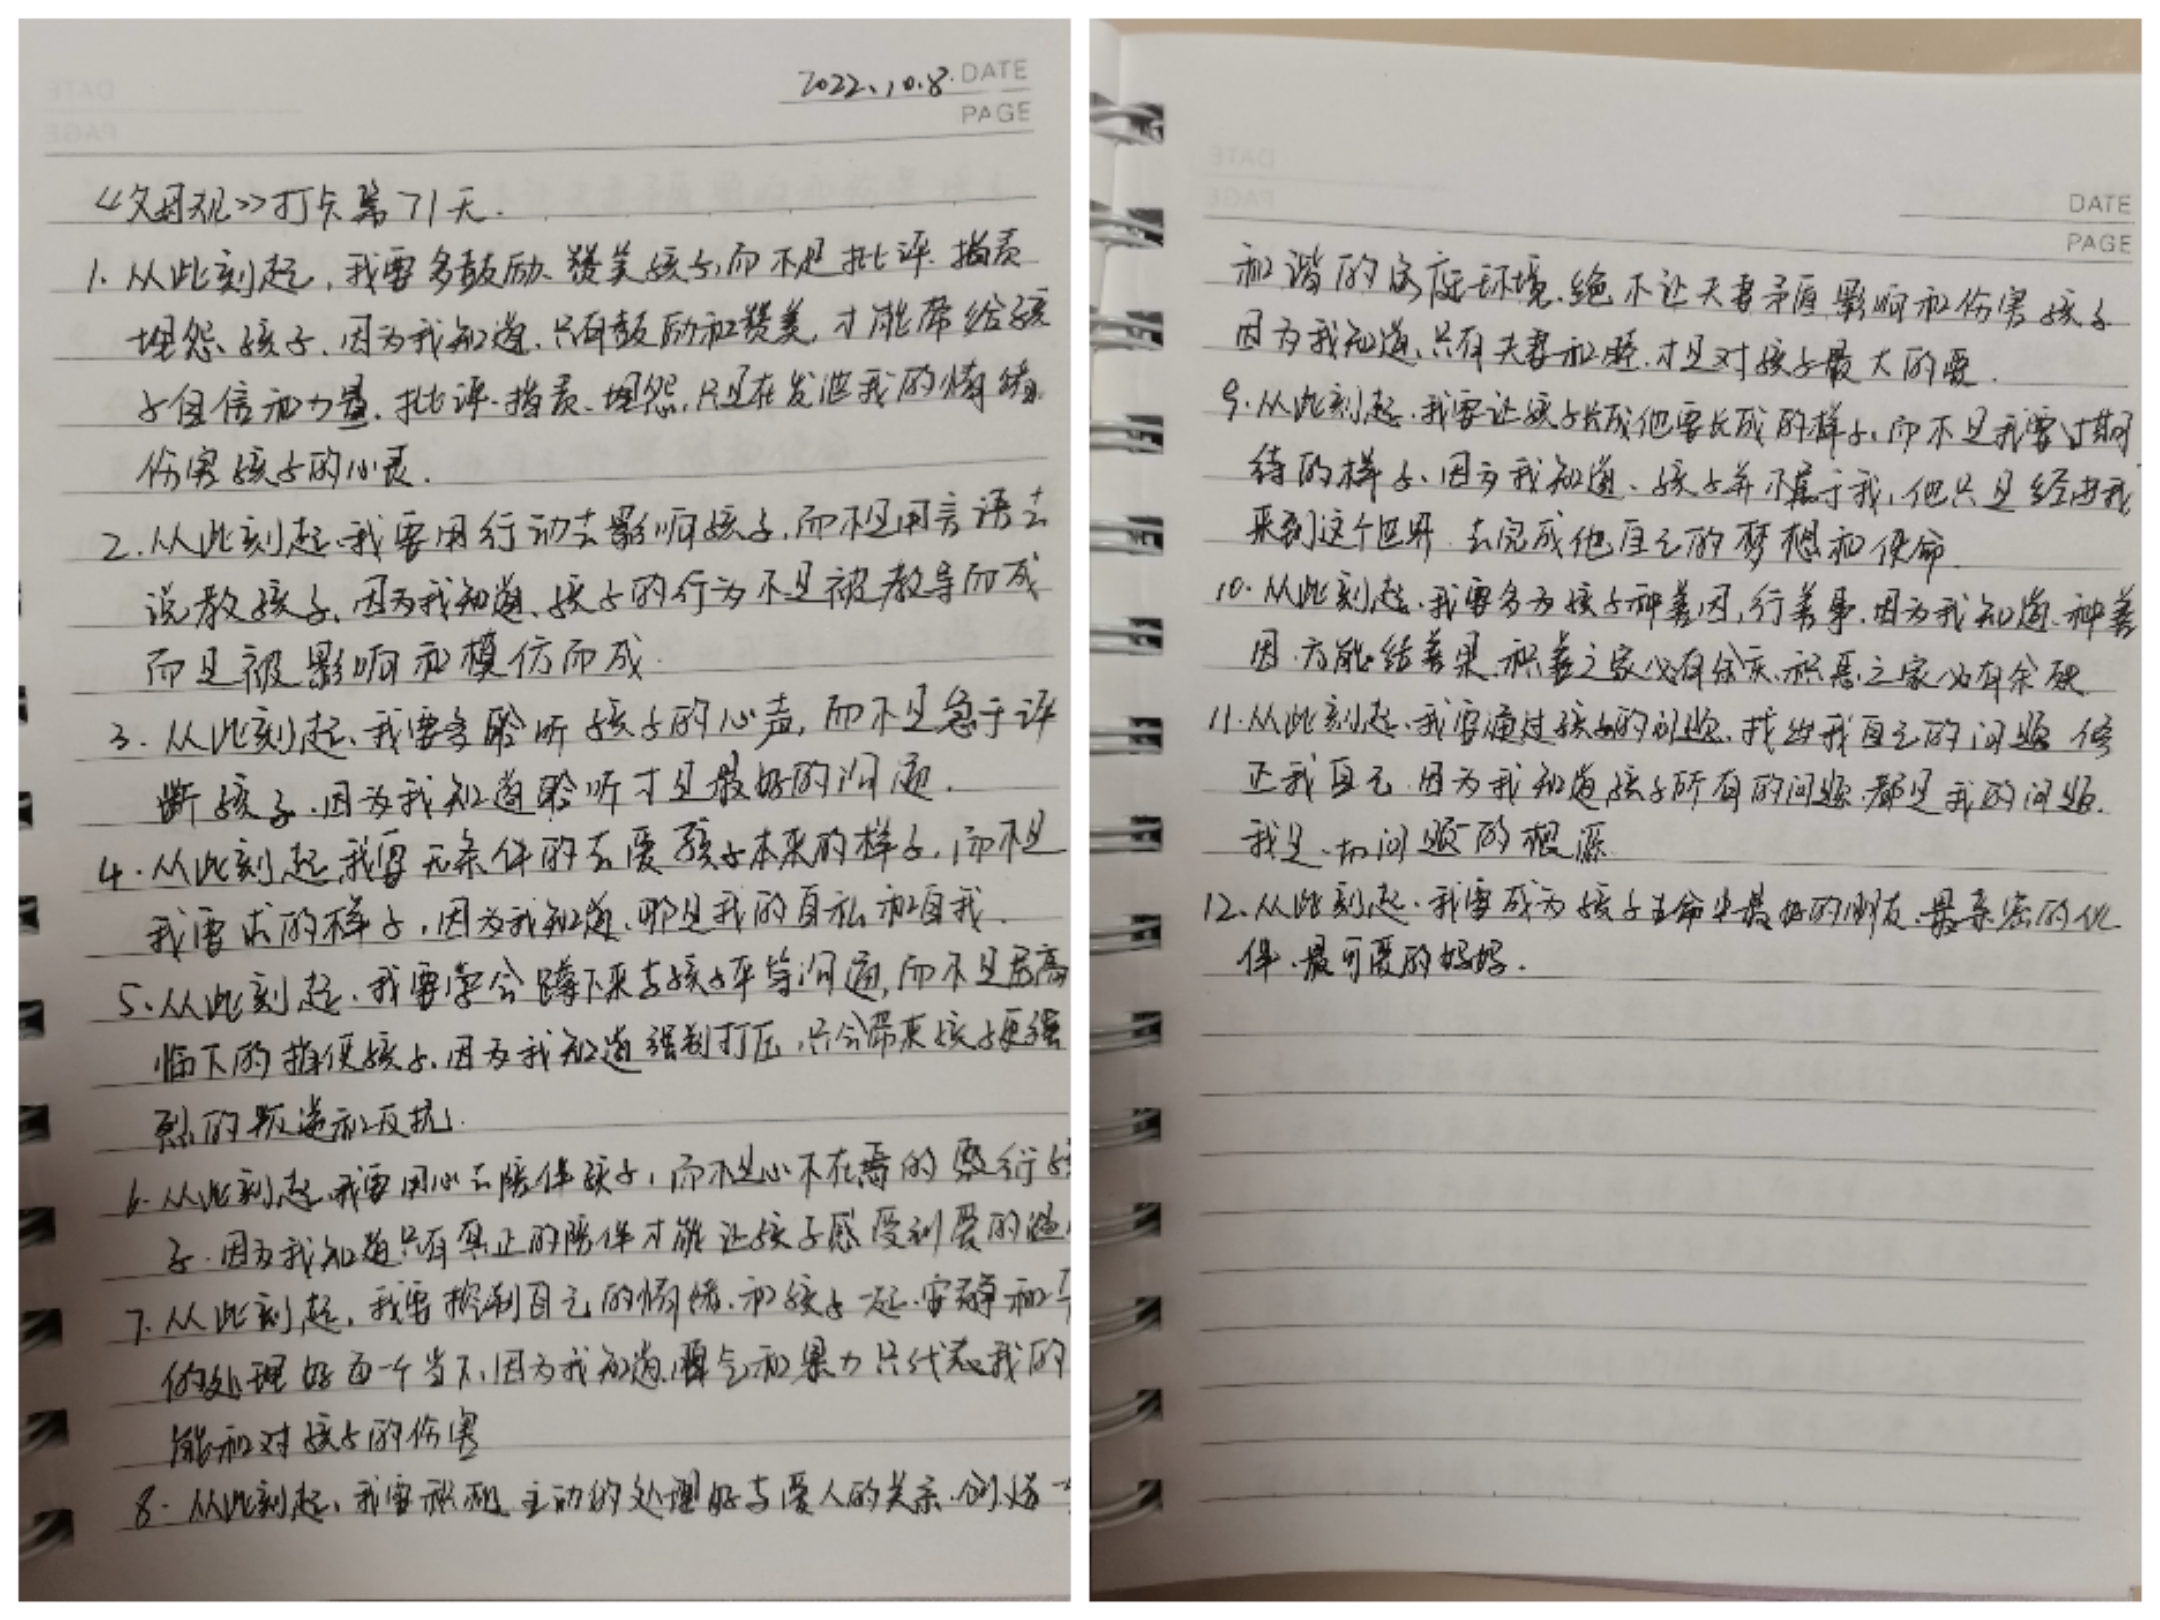 2022.10.8. DATE
PAGE
《父母观》打卡第71天.
1. 从此刻起,我要多鼓励、赞美孩子,而不是批评、指责
埋怨、孩子、因为我知道、只有鼓励和赞美,才能带给孩
子自信和力量、批评、指责、埋怨,只是在发泄我的情绪
伤害孩子的心灵.
2. 从此刻起、我要用行动去影响孩子,而不是用言语去
说教孩子、因为我知道、孩子的行为不是被教导而成
而是被影响和模仿而成.
3. 从此刻起、我要多聆听孩子的心声,而不是急于评
断孩子、因为我知道聆听才是最好的沟通.
4. 从此刻起,我要无条件的去爱孩子本来的样子,而不是
我要求的样子,因为我知道、那是我的自私和自我.
5. 从此刻起、我要学会蹲下来与孩子平等沟通,而不是居高
临下的指使孩子、因为我知道强制打压,只会带来孩子更强
烈的叛逆和反抗.
6. 从此刻起,我要用心去陪伴孩子,而不是心不在焉的敷衍孩
子.因为我知道只有真正的陪伴才能让孩子感受到爱的
7. 从此刻起,我要控制自己的情绪、和孩子一起、安静和
的处理好每一个当下、因为我知道,脾气和暴力只代表我的
能和对孩子的伤害
8. 从此刻起、我要积极、主动的处理好与爱人的关系、创造一
DATE
PAGE
和谐的家庭环境、绝不让夫妻矛盾影响和伤害孩子
因为我知道、只有夫妻和睦、才是对孩子最大的爱.
9. 从此刻起、我要让孩子长成他要长成的样子,而不是我要 期
待的样子、因为我知道、孩子并不属于我,他只是经由我
来到这个世界、去完成他自己的梦想和使命.
10. 从此刻起、我要多为孩子种善因,行善事、因为我知道、种善
因、方能结善果、积善之家必有余庆、积恶之家必有余殃
11. 从此刻起、我要通过孩子的问题、找出我自己的问题 修
正我自己、因为我知道,孩子所有的问题、都是我的问题.
我是一切问题的根源.
12. 从此刻起、我要成为孩子生命中最好的朋友、最亲密的伙
伴、最可爱的妈妈.